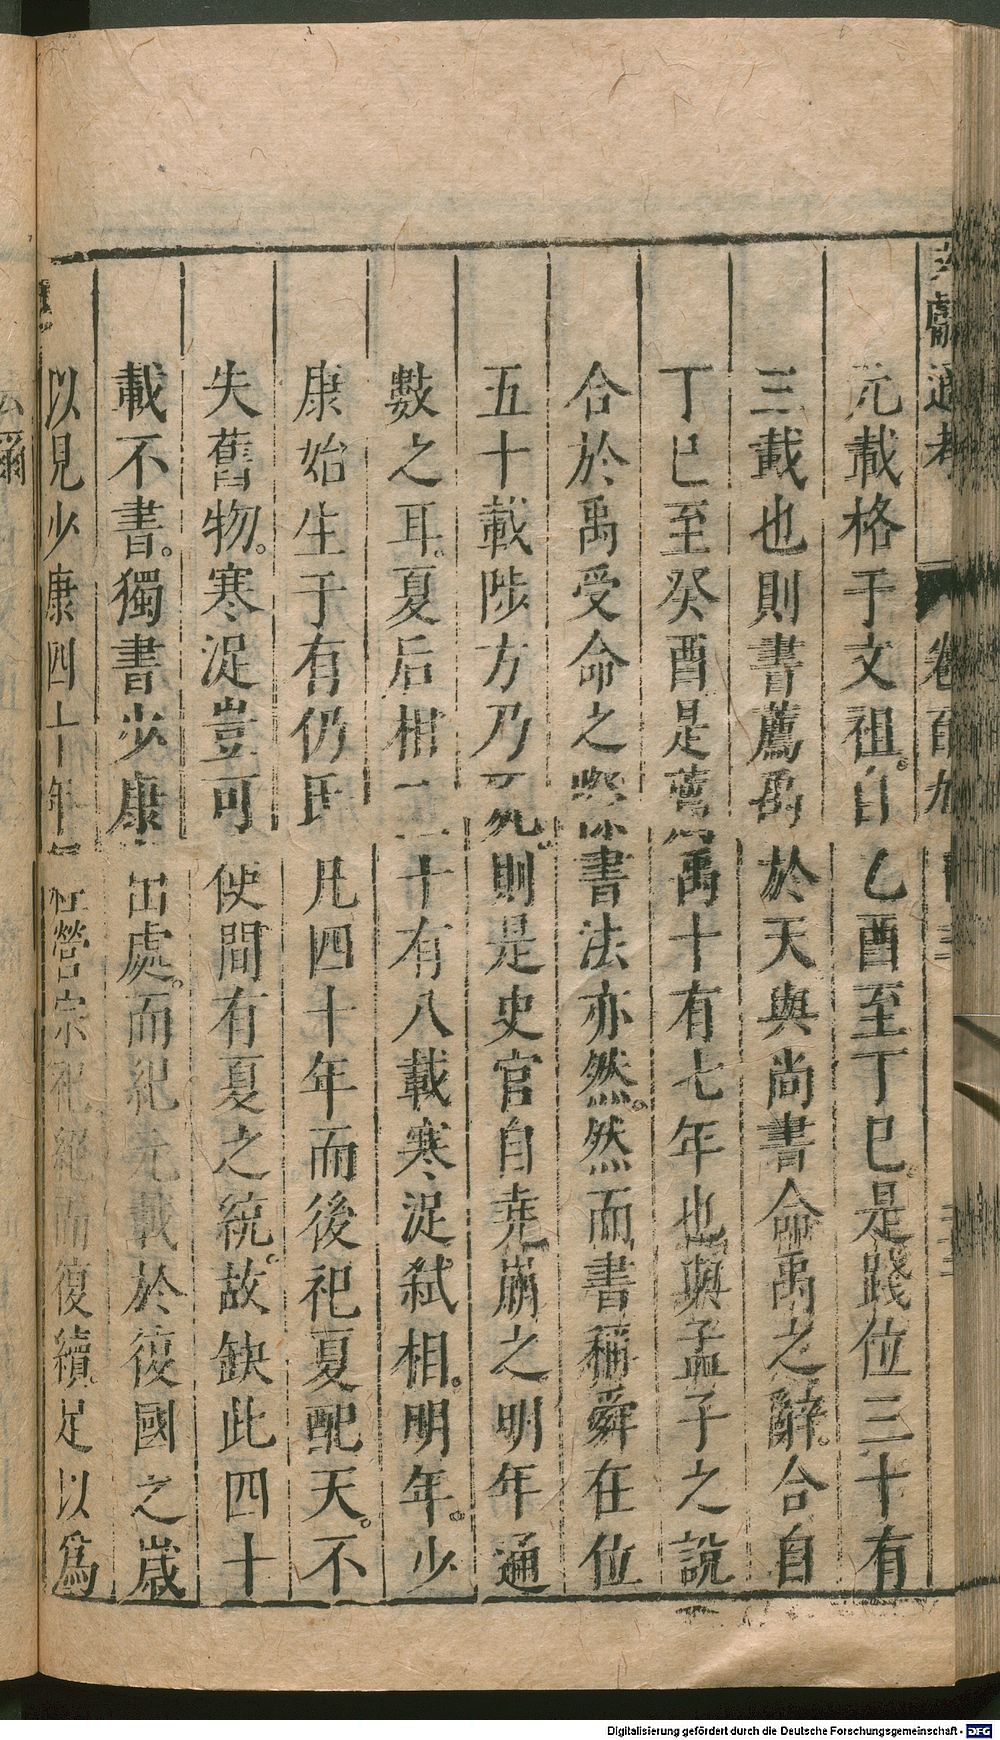 元載格于文祖。自乙酉至丁巳。是踐位三十有
三載也則書薦禹於天與尚書命禹之辭。合自
丁巳至癸酉是薦禹十有七年也與孟子之說
合於禹受命之際書法亦然。然而書稱舜在位
五十載陟方乃死。則是史官自堯崩之明年通
數之耳。夏后相二十有八載寒浞弒相。明年。少
康始生于有仍氏凡四十年而後祀夏配天。不
失舊物。寒浞豈可使間有夏之統。故缺此四十
載不書。獨書少康出處。而紀元載於復國之歲
以見少康四十年經營宗祀絕而復續。足以為
Digitalisierung gefördert durch die Deutsche Forschungsgemeinschaft - DFG